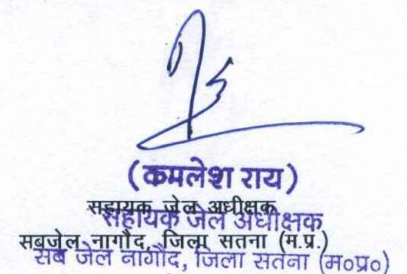 (कमलेश राय)
सहायक जेल अधीक्षक
सहायक जेल अधीक्षक
सबजेल नागौद, जिला सतना (म.प्र.)
सब जेल नागौद, जिला सतना (म०प्र०)